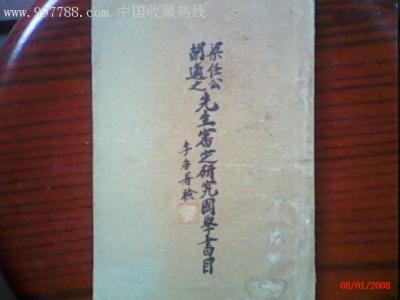 www.997788.com 中国收藏热线
梁任公
胡適之
先生審定研究國學書目
08/01/2008